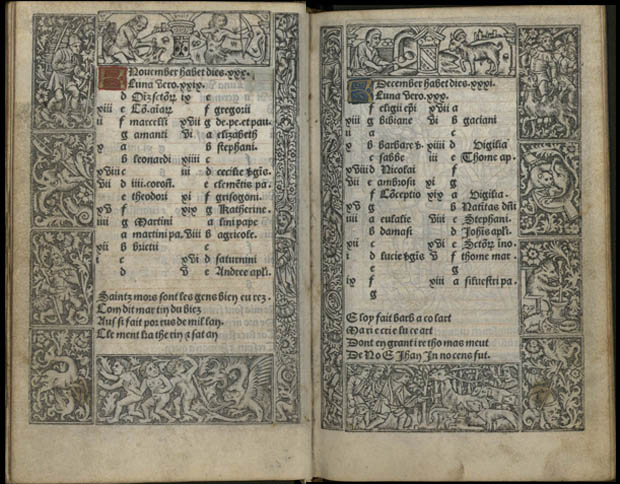 November habet dies.xxx.
Luna vero.xxix.
d ix e
xiii e f gregorii
ii f marcelli xvii g de.pe.et pau.
g amanti vi a elizabeth
x a b stephani.
b leonardi xiiii c
xviii c iii d cecilie vgīs.
vii d iiii.corost. e clemētis pa.
e theodori xi f grisogoni.
xv f xix g Katherine.
iiii g Martini a lini pape
a martini pa. viii b agricole.
xii b brictii c
i c xvi d saturnini
d v e Andree apli.
Saintz mors sont les gens biey eu rez.
Com dit mar tin du biez
Aus si fait por rus de mil lan.
Cle ment ka the rin &amp; sat an
December habet dies.xxxi.
Luna vero.xxx.
f eligii epi xvii a
xiii g bibiane vi b gaciani
ii a c
x b barbare v. xiiii d Vigilia
c sabbe iii e Thome ap.
xviii d Nicolai f
vii e ambrosii xi g
f Cōceptio xix a Vigilia.
xv g b
iiii a eulalie viii c Stephani.
b damasi d Johis apli.
xii c xvi e
i d lucie vgīs v f thome mar.
e g
ix f xiii a silvestri pa.
g
E loy fait barb a co lart
Ma ri e crie lu ce art
Dont ey grant i re tho mas meut
De No E Jhan Jn no cens fut.